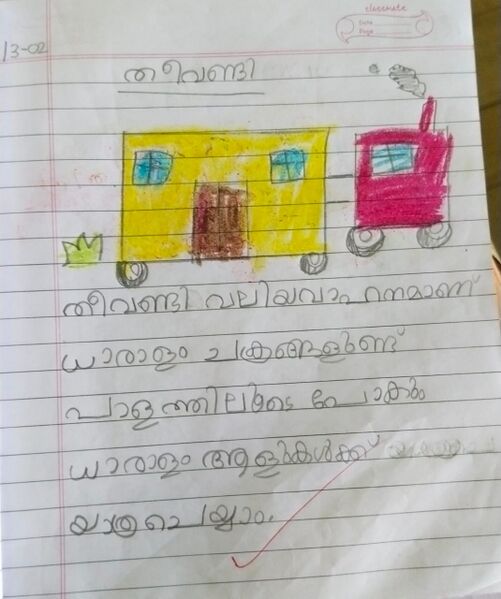 classmate
Date
Page
13-02
തീവണ്ടി
തീവണ്ടി വലിയവാഹനമാണ്
ധാരാളം ചക്രങ്ങളുണ്ട്
പാളത്തിലൂടെ പോകും
ധാരാളം ആളുകൾക്ക്
യാത്രചെയ്യാം.